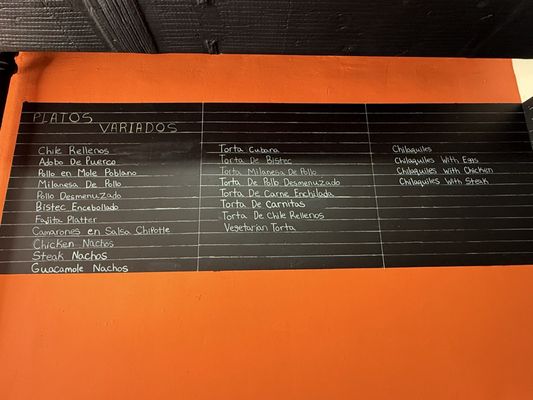 PLATOS
VARIADOS
Chile Rellenos
Adobo De Puerco
Pollo en Mole Poblano
Milanesa De Pollo
Pollo Desmenuzado
Bistec Encebollado
Fajita Platter
Camarones en Salsa Chipotle
Chicken Nachos
Steak Nachos
Guacamole Nachos
Torta Cubana
Torta De Bistec
Torta Milanesa De Pollo
Torta De Pollo Desmenuzado
Torta De Carne Enchilada
Torta De Carnitas
Torta De Chile Rellenos
Vegetarian Torta
Chilaquiles
Chilaquiles With Eggs
Chilaquiles With Chicken
Chilaquiles With Steak